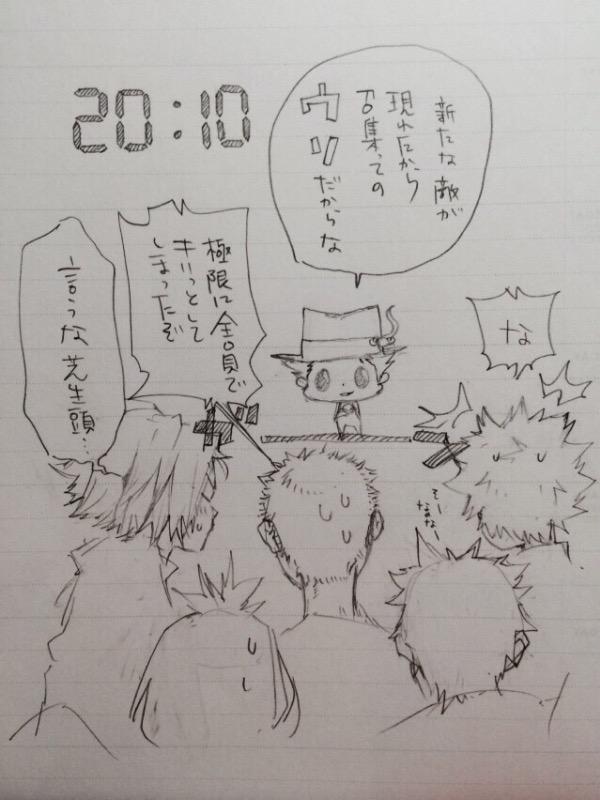 20:10
新たな敵が
現れたから
召集っての
ウソだからな
な
極限に全員で
キリっとして
しまったぞ
言うな芝生頭…